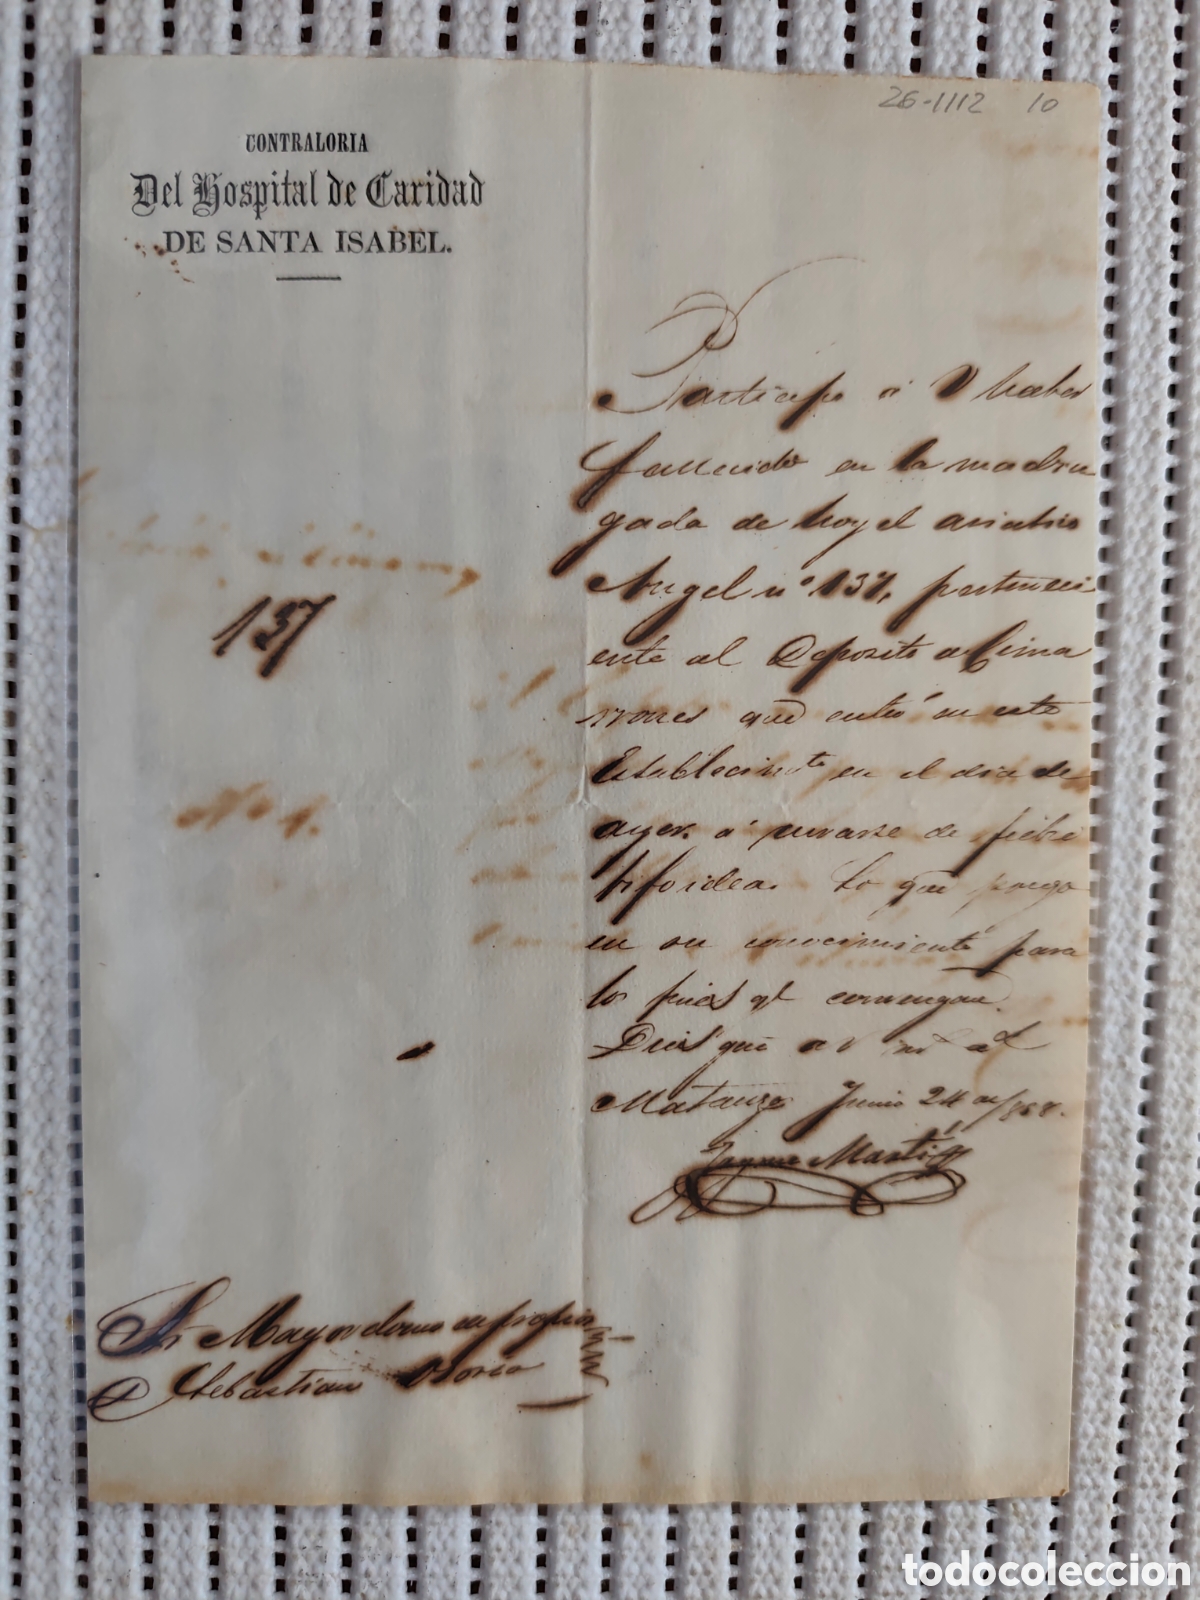 26-1112 10
CONTRALORIA
Del Hospital de Caridad
DE SANTA ISABEL.
Participo á V haber
fallecido en la madru
gada de hoy el asiatico
Angel nº 137, perteneci
ente al Deposito de Cima
rrones que entró en este
Establecimto en el dia de
ayer á curarse de fiebre
tifoidea. Lo que pongo
en su conocimiento para
los fines qe convengan.
Dios gue a V ms as
Matanzas Junio 24 de /868.
Jayme Martí
137
No 1.
Sr Mayordomo en propio
D Sebastian Osorio
todocoleccion